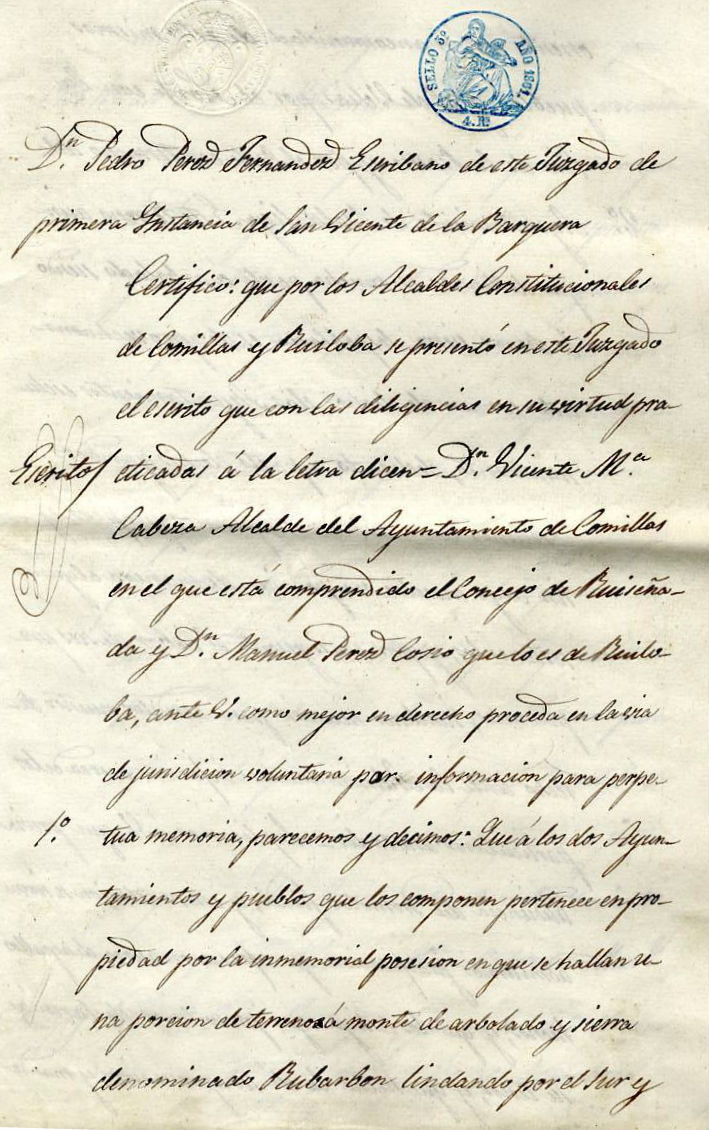 SELLO 3º AÑO 1861.
4 Rˢ
Dⁿ Pedro Perez Fernandez Escribano de este Juzgado de
primera Instancia de San Vicente de la Barquera
Certifico: que por los Alcaldes Constitucionales
de Comillas y Ruiloba se presentó en este Juzgado
el escrito que con las diligencias en su virtud pra-
Escrito/ cticadas á la letra dicen= Dⁿ Vicente Mª
Cabeza Alcalde del Ayuntamiento de Comillas
en el que está comprendido el Concejo de Ruiseña-
da y Dⁿ Manuel Perez Cosio que lo es de Ruilo-
ba, ante V. como mejor en derecho proceda en la via
de jurisdicion voluntaria por informacion para perpe-
1.º tua memoria, parecemos y decimos: Que á los dos Ayun-
tamientos y pueblos que los componen pertenece en pro-
piedad por la inmemorial posesion en que se hallan u-
na porcion de terreno á monte de arbolado y sierra
denominado Rubarbon lindando por el Sur y